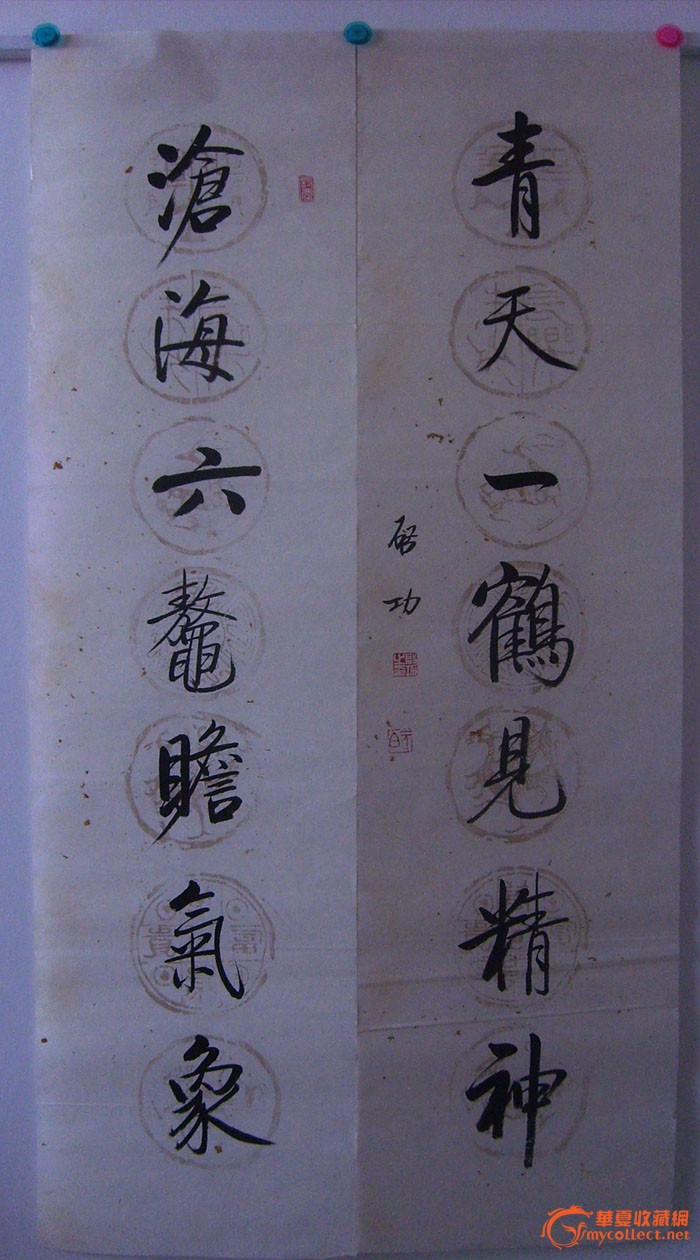 青天一鶴見精神
滄海六鼇瞻氣象
啓功
華夏收藏網
mycollect.net